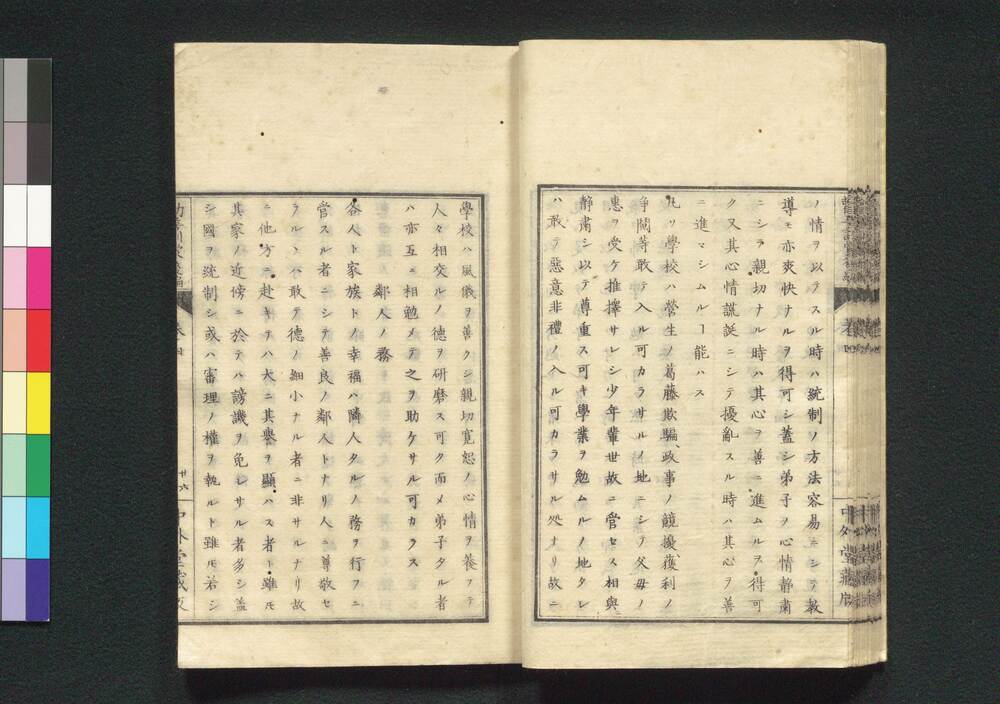 ノ情ヲ以テスル時ハ統制ノ方法容易ニシテ教
導モ亦爽快ナルヲ得可シ蓋シ弟子ヲ心情静肅
ニシテ親切ナル時ハ其心ヲ善ニ進ムルヲ得可
ク又其心情謊誕ニシテ擾亂スル時ハ其心ヲ善
ニ進マシムルヿ能ハス
凡ソ學校ハ營生ノ葛藤欺騙政事ノ競擾獲利ノ
爭鬪等敢テ入ル可カラサルノ地ニシテ父母ノ
惠ヲ受ケ推擇サレシ少年輩世故ニ管セス相與
静肅シ以テ尊重ス可キ學業ヲ勉ムルノ地タレ
ハ敢テ惡意非禮ノ入ル可カラサル処ナリ故ニ
中外堂藏版
學校ハ風儀ヲ善クシ親切寛恕ノ心情ヲ養フテ
人々相交ルノ德ヲ研磨ス可ク而メ弟子タル者
ハ亦互ニ相勉メテ之ヲ助ケサル可カラス
鄰人ノ務
各人ト家族トノ幸福ハ隣人タルノ務ヲ行フニ
管スル者ニシテ善良ノ鄰人トナリ人ニ尊敬セ
ラルヽハ敢テ德ノ細小ナル者ニ非サルナリ故
ニ他方ニ赴キテハ大ニ其譽ヲ顯ハス者ト雖モ
其家ノ近傍ニ於テハ謗譏ヲ免レサル者多シ蓋
シ國ヲ統制シ或ハ審理ノ權ヲ執ルト雖モ若シ
廿六